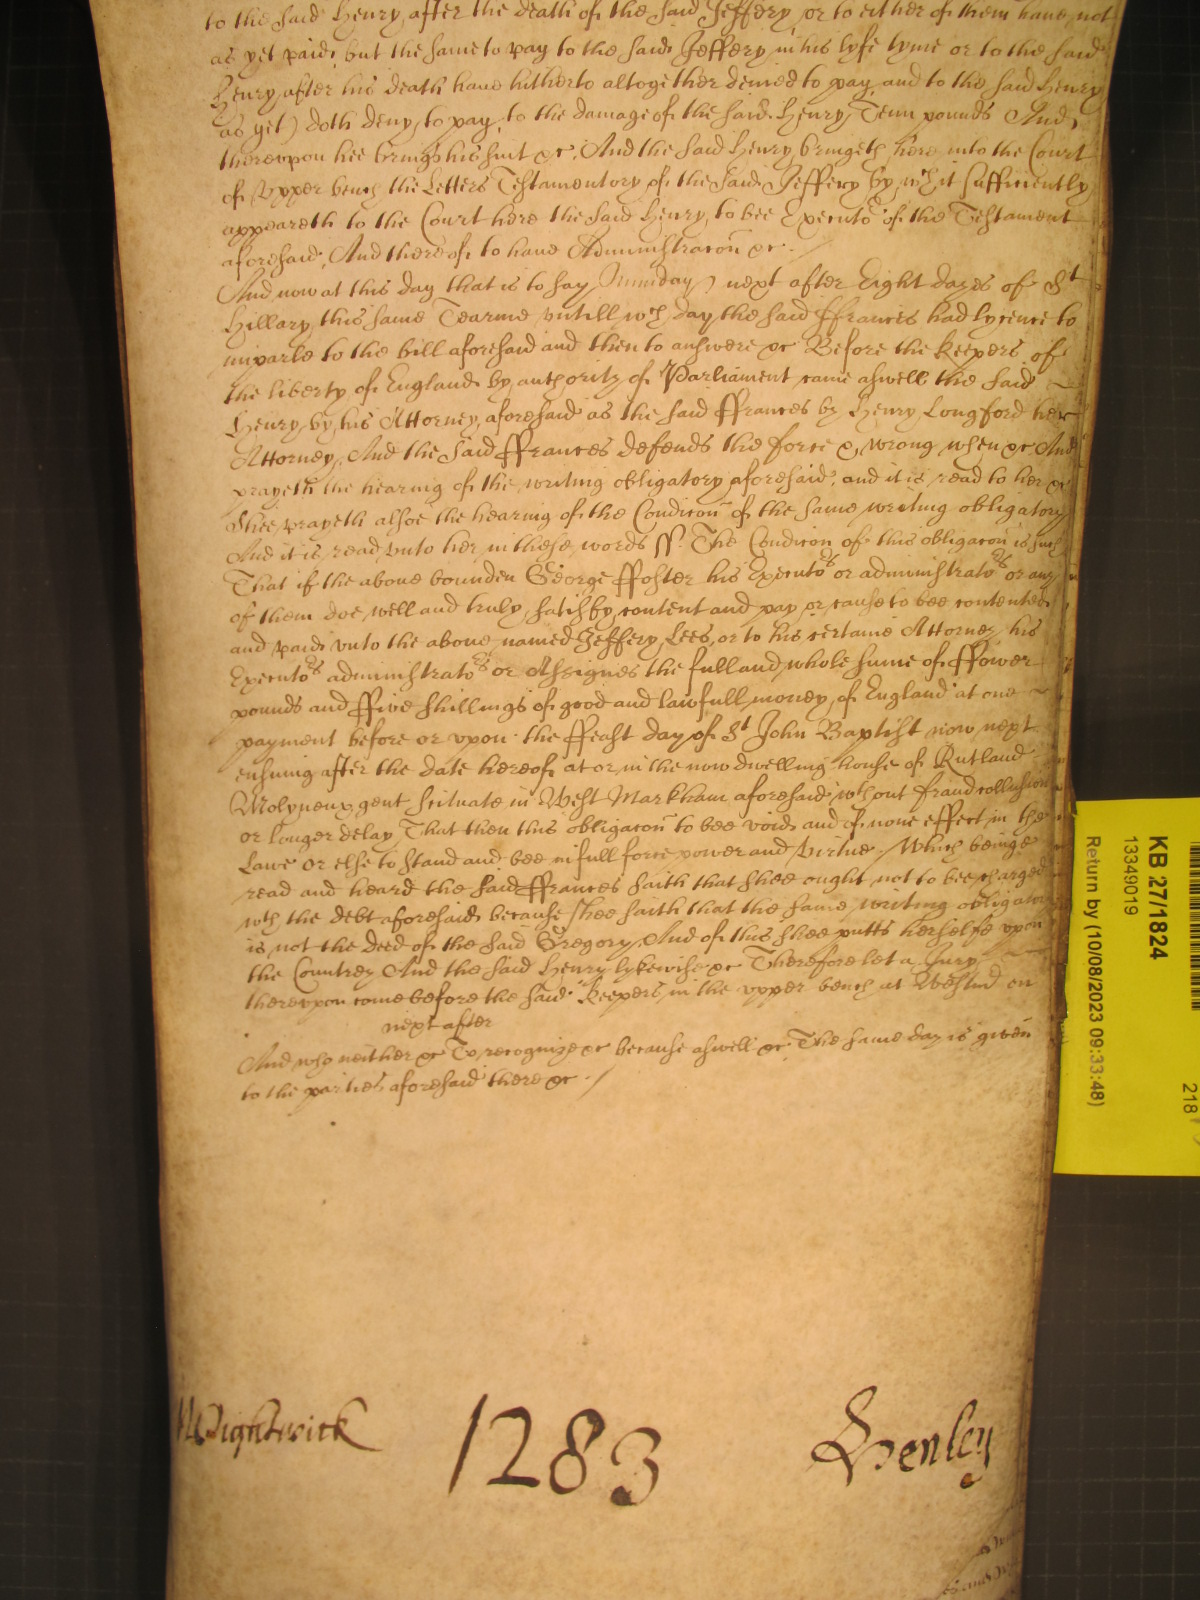 to the said Henry, after the death of the said Jeffery, or to either of them haue, not
as yet paid, but the same to pay to the said Jeffery in his lyfe tyme or to the said
Henry, after his death haue hitherto altogether denied to pay, and to the said Henry
as yet) doth deny, to pay, to the damage of the said Henry, Tenn pounds And,
therevpon hee brings his suit &c; And the said Henry, bringeth here into the Court
of Vpper bench the Letters Testamentory of the said Jeffery by, wch it sufficiently
appeareth to the Court here the said Henry, to bee Executor of the Testament
aforesaid, And thereof to haue Administracon &c. /
And now at this day that is to say Munday next after Eight dayes of St
Hillary, this same Tearme vntill wch day the said ffrances had lycence to
imparle to the bill aforesaid and then to answere &c Before the Keepers of
the liberty of England by authority of Parliament came aswell the said
Henry, by, his Attorney, aforesaid as the said ffrances by Henry Longford her
Attorney, And the said ffrances defends the force & wrong, when &c And
prayeth the hearing of the writing obligatory aforesaid, and it is read to her &c
Shee prayeth alsoe the hearing of the Condicon of the same writing obligatory
And it is read vnto her in these words ss. The Condicon of this obligacon is such
That if the aboue bounden George ffoster his Executors or administrators or any
of them doe, well and truly, satisfy, content and pay or cause to bee contented
and paid vnto the aboue named Jeffery Lees, or to his certaine Attorney his
Executors administrators or Assignes the full and whole sume of ffower
pounds and ffive shillings of good and lawfull money, of England at one
payment before or vpon the ffeast day of St John Baptist now next
ensuing after the date hereof at or in the now dwelling house of Rutland
Molyneux gent scituate in West Markham aforesaid wthout fraud collusion
or longer delay That then this obligacon to bee void and of none effect in the
Lawe or else to stand and bee in full force power and virtue. Which beinge
read and heard the said ffrances saith that shee ought not to bee charged
wth the debt aforesaid because shee saith that the same writing obligatory
is not the deed of the said Gregory, And of this shee putts herselfe vpon
the Countrey And the said Henry lykewise &c Therefore let a Jury
therevpon come before the said Keepers in the vpper bench at Westmr on
next after
And who neither &c To recognize &c because aswell &c The same day is given
to the parties aforesaid there &c. /
Wightwick 1283 Henley
KB 27/1824
13349019
Return by (10/08/2023 09:33:48)
218